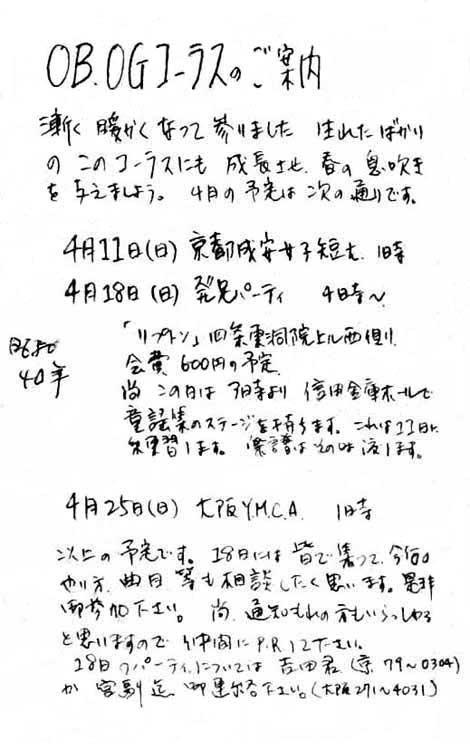 OB.OGコーラスのご案内
漸く 暖かくなって参りました 生れたばかり
の このコーラスにも 成長させ、春の息吹き
を与えましょう。 4月の予定は次の通りです。
4月11日(日) 京都成安女子短大 1時
4月18日(日) 発足パーティ 4時〜
「リプトン」四条西洞院上ル西側
会費 600円の予定
昭和
40年
尚 この日は 7時より 信用金庫ホールで
童謡集のステージを持ちます。これは11日に
練習します。 楽譜はその時渡します。
4月25日(日) 大阪Y.M.C.A. 1時
以上の予定です。18日には皆で集って、今后の
やり方、曲目 等も相談したく思います。是非
御参加下さい。 尚、通知もれの方もいらっしゃる
と思いますので 仲間にP.R.して下さい。
18日のパーティについては 吉田君(京 79〜0304)
か 宮副 迄 御連絡下さい。(大阪 271〜4031)